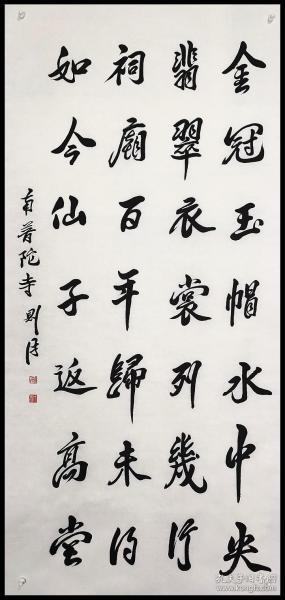 金冠玉帽水中央
翡翠衣裳列幾行
祠廟百年歸未得
如今仙子返高堂
南普陀寺 則得